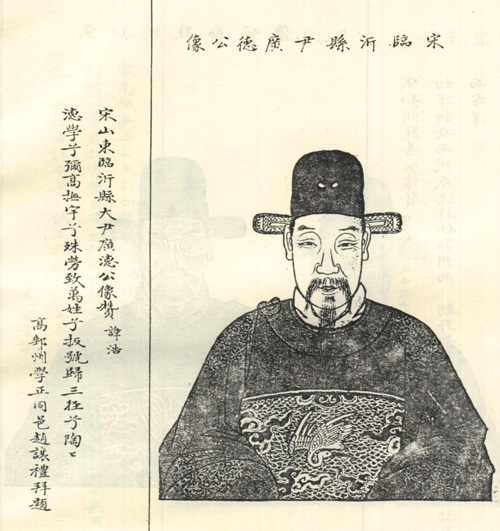 宋臨沂縣尹廣德公像
宋山東臨沂縣大尹廣德公像贊 諱浩
德學兮彌高撫宇兮殊勞致萬姓兮扳號歸三徑兮陶〻
高郵州學正同邑趙讓禮拜題